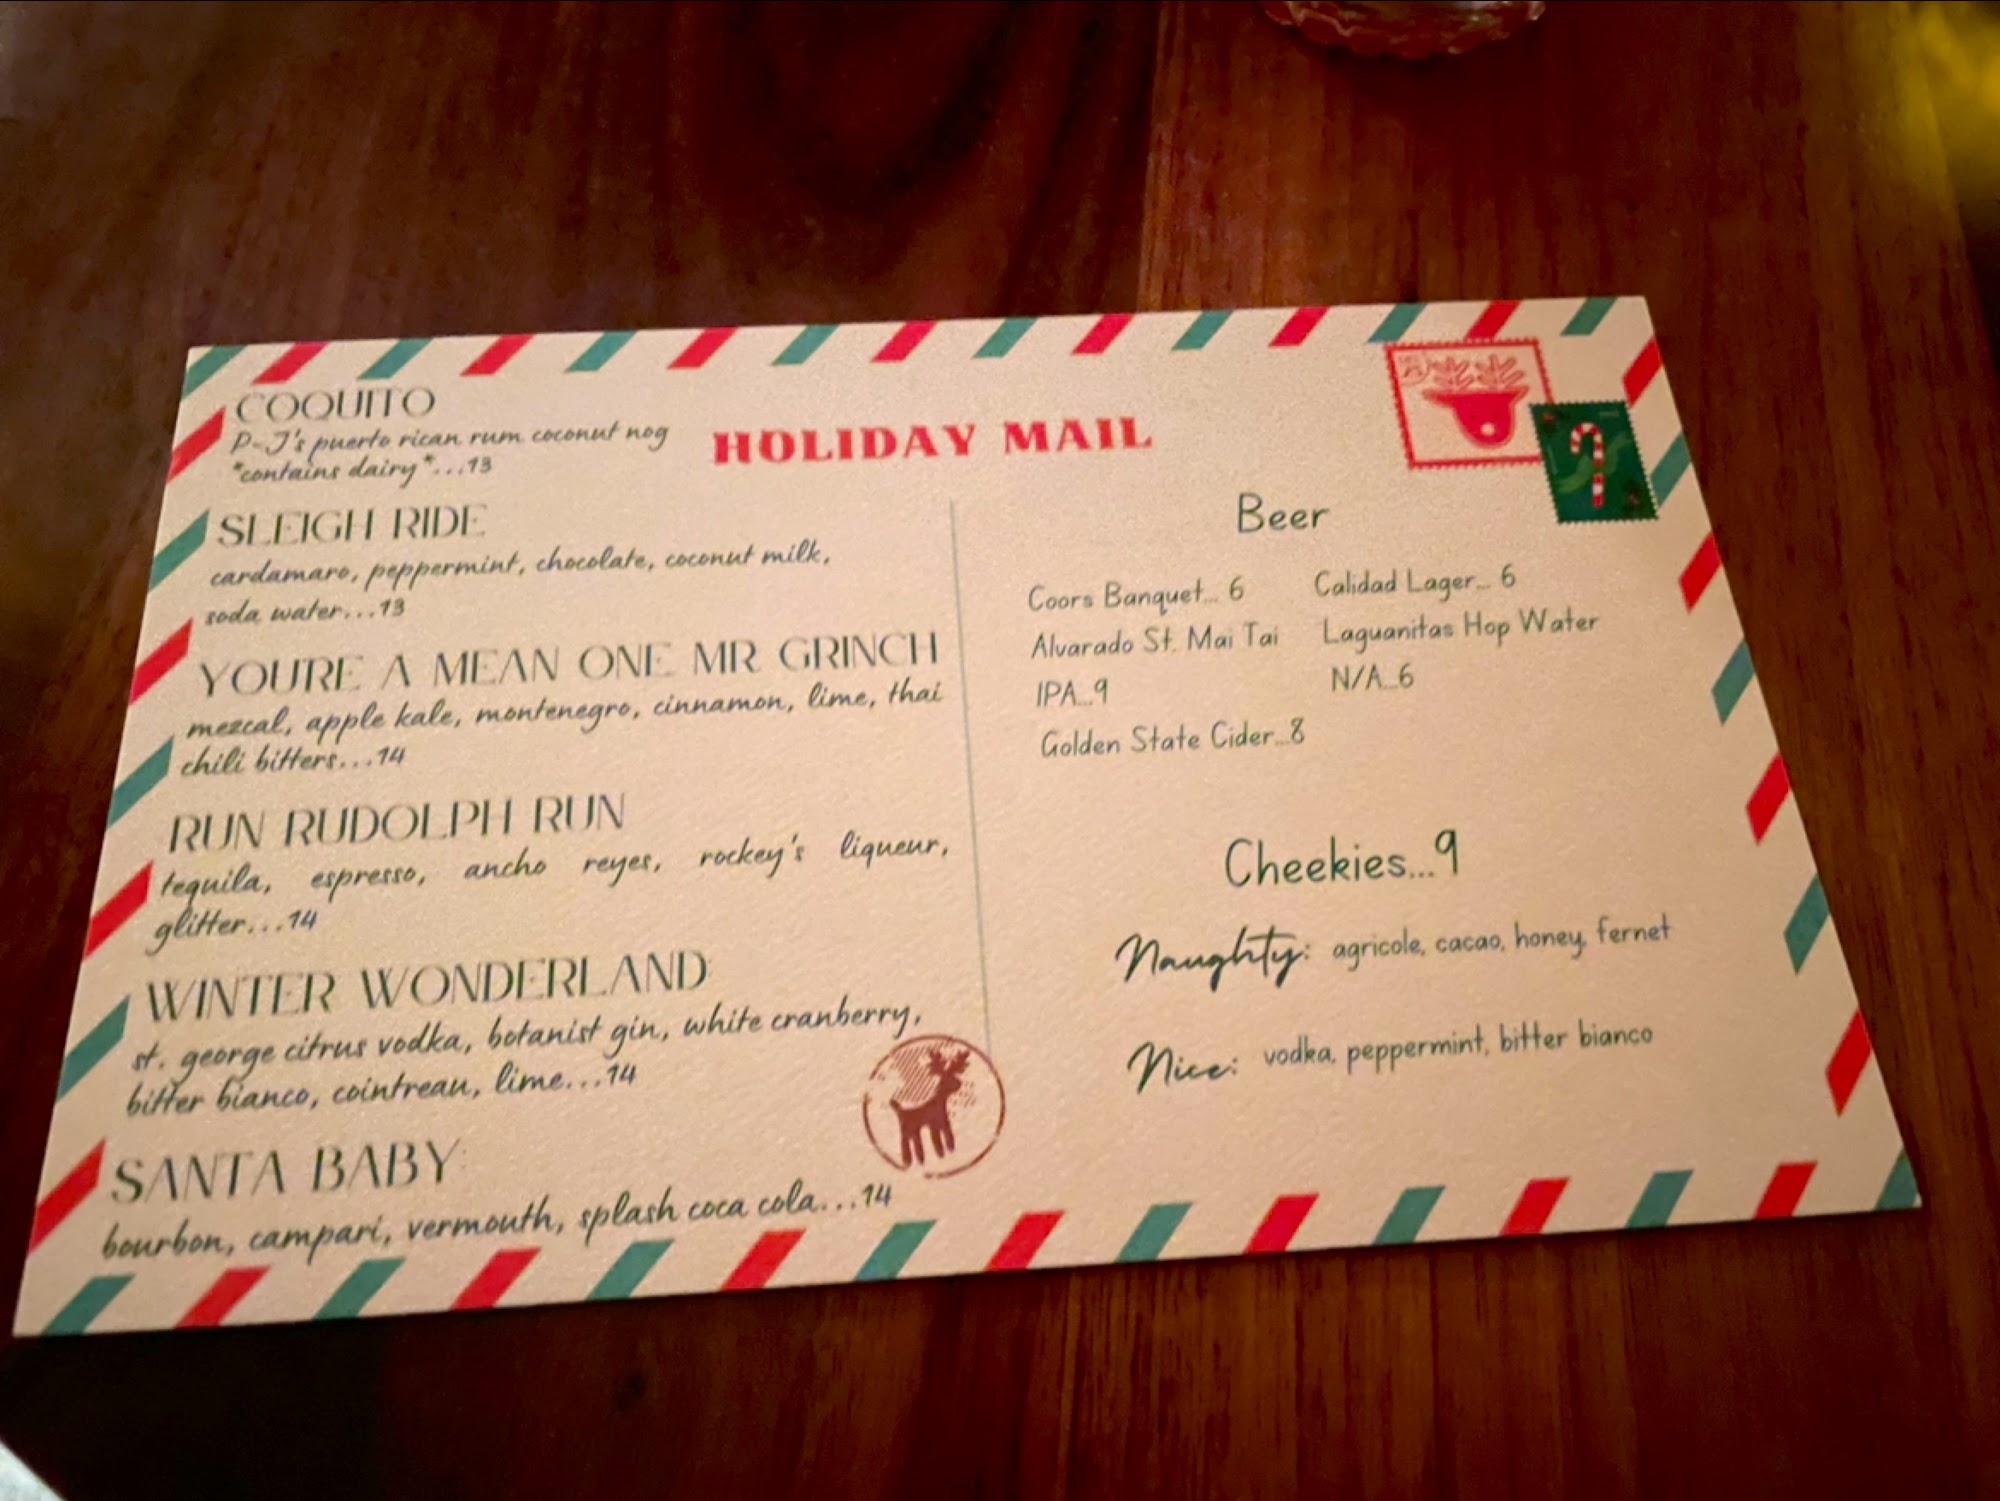 COQUITO
P-J's puerto rican rum coconut nog
*contains dairy*...13
HOLIDAY MAIL
SLEIGH RIDE
cardamaro, peppermint, chocolate, coconut milk,
soda water...13
YOU'RE A MEAN ONE MR GRINCH
mezcal, apple kale, montenegro, cinnamon, lime, thai
chili bitters...14
RUN RUDOLPH RUN
tequila, espresso, ancho reyes, rockey's liqueur,
glitter...14
WINTER WONDERLAND
st. george citrus vodka, botanist gin, white cranberry,
bitter bianco, cointreau, lime...14
SANTA BABY
bourbon, campari, vermouth, splash coca cola...14
Beer
Coors Banquet... 6
Alvarado St. Mai Tai
IPA...9
Golden State Cider...8
Calidad Lager... 6
Laguanitas Hop Water
N/A...6
Cheekies...9
Naughty: agricole, cacao, honey, fernet
Nice: vodka, peppermint, bitter bianco